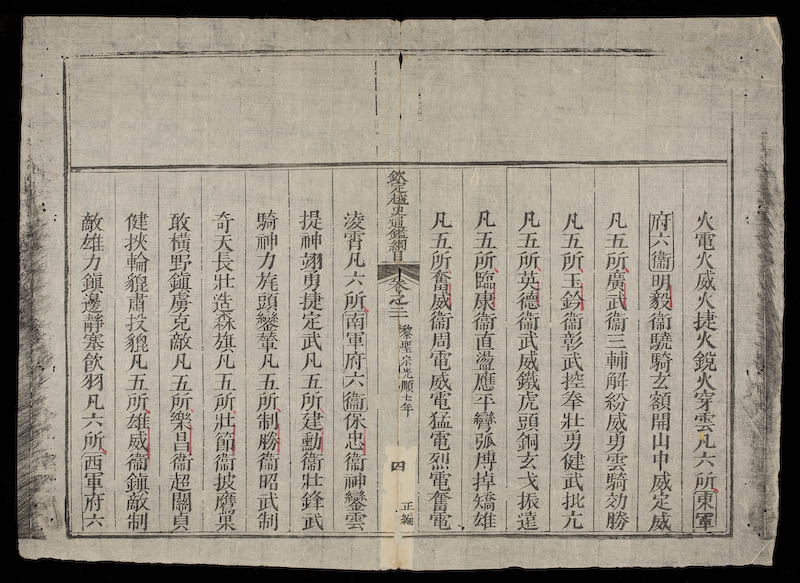 火電火威火捷火銳火穿雲凡六所東軍
府六衞明毅衞驍騎玄額開山中威定威
凡五所廣武衞三輔解紛威勇雲騎効勝
凡五所玉鈐衞彰武控奉壯勇健武批亢
凡五所英德衞武威鐵虎頭銅玄戈振遠
凡五所臨康衞直盪應平彎弧慱掉矯雄
凡五所奮威衞周電威電猛電烈電奮電
欽定越史通鑑綱目 卷之二 黎聖宗光順七年 四 正編
凌霄凡六所南軍府六衞保忠衞神鑾雲
提神翊勇捷定武凡五所建勳衞壯鋒武
騎神力旄頭鑾輦凡五所制勝衞昭武制
奇天長壯造森旗凡五所壯節衞披磨菓
敢橫野鎭虜克敵凡五所樂昌衞超關貞
健挾輪貔肅投貔凡五所雄威衞鎭敵制
敵雄力鎭邊靜塞飮羽凡六所西軍府六